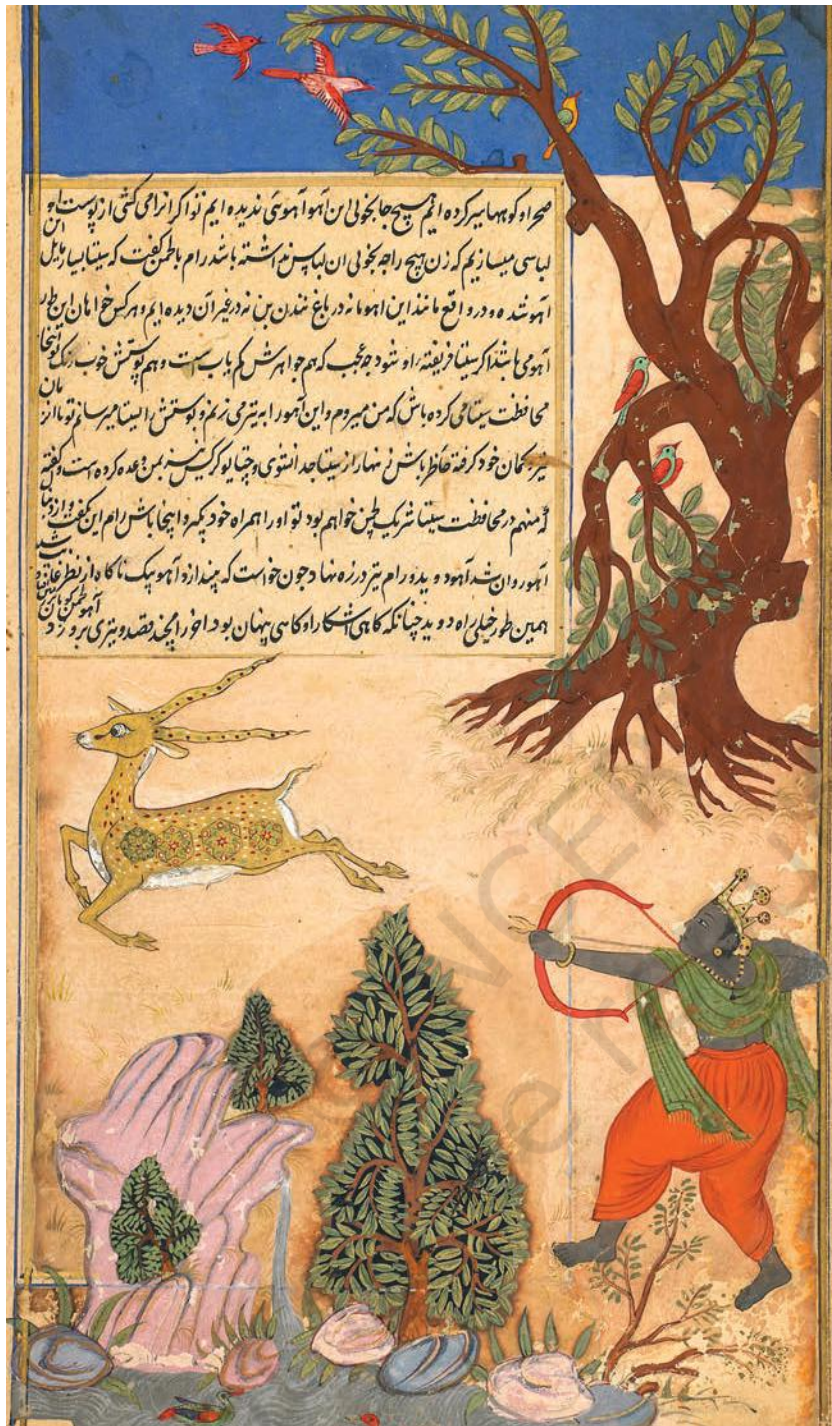 صحرا و کوهها سیر کرده ایم هیچ جا بخوبی این آهو آهوئی ندیده ایم تو اگر انرا می کشی از پوست او
لباسی میسازیم که زن هیچ راجه بخوبی ان لباس نداشته باشد رام با لچمن گفت که سیتا بسیار مایل این
آهو شده و در واقع مانند این اهو ما نه در باغ نندن بن نه در غیر آن دیده ایم و هر کس خواهان این طور
آهو می باشد اگر سیتا فریفته او شود چه عجب که هم جواهرش کم یاب است و هم پوستش خوب رنگ تو اینجا
محافظت سیتا می کرده باش که من میروم و این آهو را به تیر می زنم و پوستش را بسیتا میرسانم تو
تیر و کمان خود گرفته حاظر باش زنهار از سیتا جدا نشوی و جتایو کرکس نیز بمن وعده کرده است و گفته
که منهم در محافظت سیتا شریک لچمن خواهم بود تو او را همراه خود بگیر و اینجا باش رام این بگفت و از دنبال
آهو روان شد آهو دوید و رام تیر در زه نهاد چون خواست که بیندازد آهو بیک ناکاه از نظر غایب شد
همین طور خیلی راه دوید چنانکه کاهی اشکارا و کاهی پنهان بود اخر رامچند قصد و تیری برو زد
NCE
e r